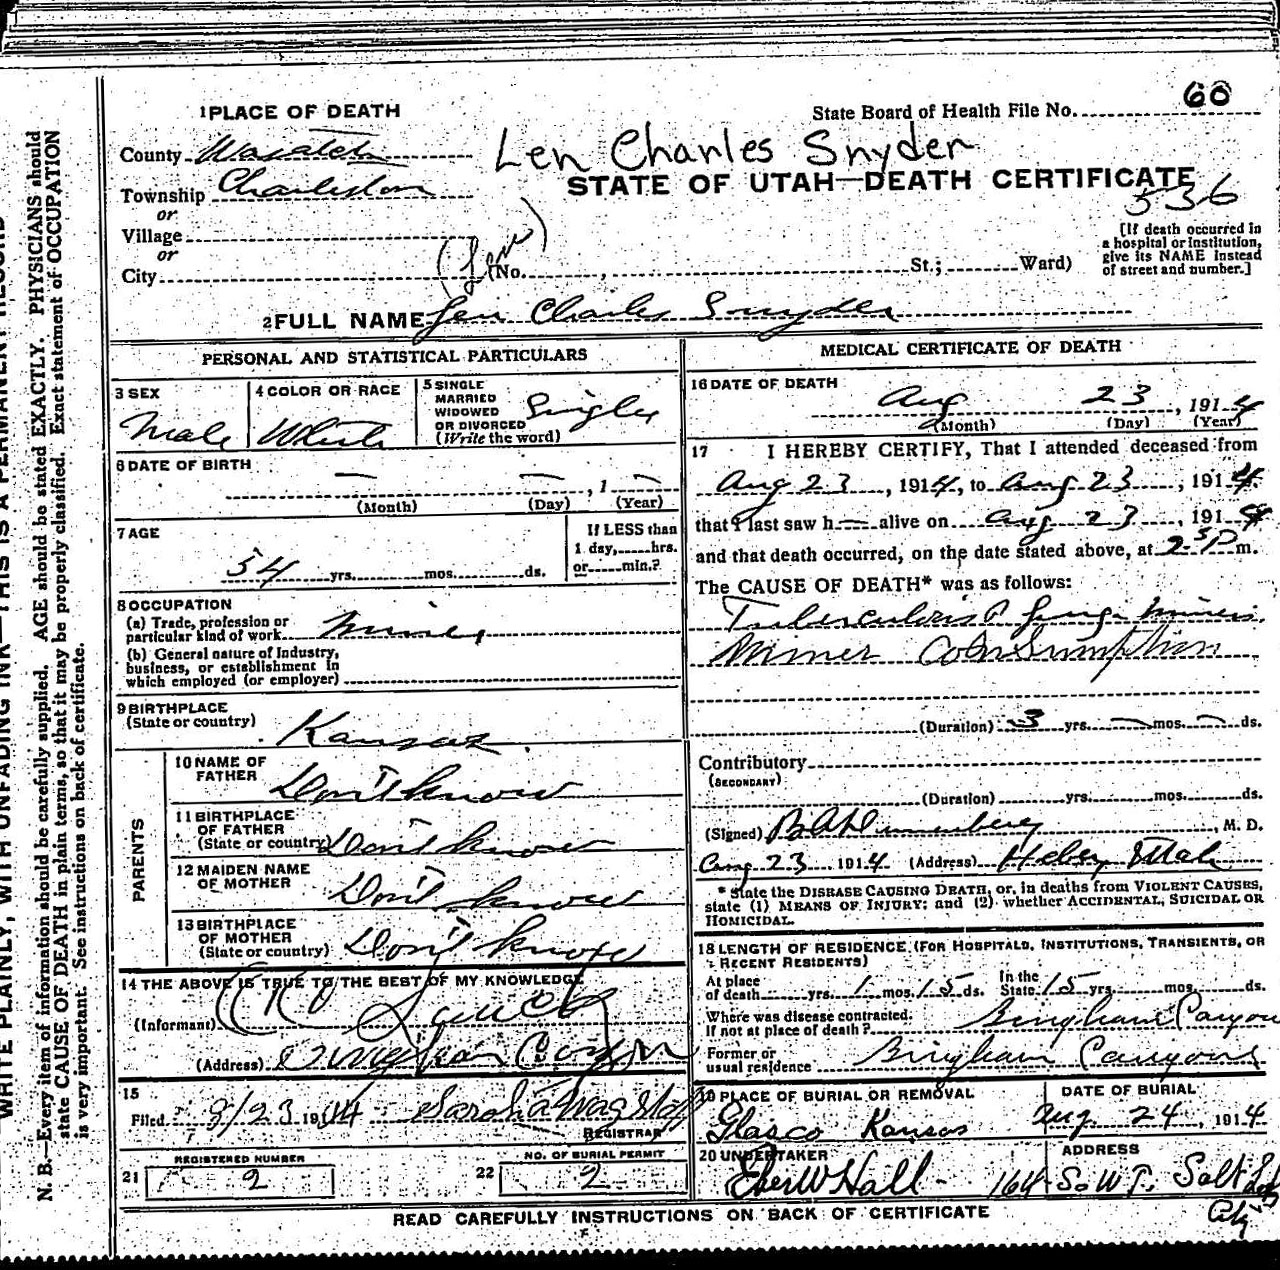 60
1 PLACE OF DEATH
State Board of Health File No.
County Wasatch
Len Charles Snyder
Township Charleston
STATE OF UTAH—DEATH CERTIFICATE
536
or
Village
or
City
(Len)
(No. , St.; Ward)
[If death occurred in
a hospital or institution,
give its NAME instead
of street and number.]
2 FULL NAME Len Charles Snyder
PERSONAL AND STATISTICAL PARTICULARS
3 SEX
Male
4 COLOR OR RACE
White
5 SINGLE
MARRIED
WIDOWED
OR DIVORCED
(Write the word)
Single
6 DATE OF BIRTH
— — , 1 —
(Month) (Day) (Year)
7 AGE
54 yrs. mos. ds.
If LESS than
1 day, hrs.
or min.?
8 OCCUPATION
(a) Trade, profession or
particular kind of work Miner
(b) General nature of Industry,
business, or establishment in
which employed (or employer)
9 BIRTHPLACE
(State or country)
Kansas
PARENTS
10 NAME OF
FATHER
Don't know
11 BIRTHPLACE
OF FATHER
(State or country) Don't know
12 MAIDEN NAME
OF MOTHER
Don't know
13 BIRTHPLACE
OF MOTHER
(State or country) Don't know
14 THE ABOVE IS TRUE TO THE BEST OF MY KNOWLEDGE
(Informant)
(Address) Bingham Canyon
15
Filed 8/23 1914 Sarah A Wagstaff
REGISTRAR
21
REGISTERED NUMBER
2
22
NO. OF BURIAL PERMIT
2
MEDICAL CERTIFICATE OF DEATH
16 DATE OF DEATH
Aug 23 , 1914
(Month) (Day) (Year)
17 I HEREBY CERTIFY, That I attended deceased from
Aug 23 , 1914, to Aug 23 , 1914
that I last saw h— alive on Aug 23 , 1914
and that death occurred, on the date stated above, at 2 P m.
The CAUSE OF DEATH* was as follows:
Tuberculosis Miners
Miner Consumption
(Duration) 3 yrs. — mos. — ds.
Contributory
(SECONDARY)
(Duration) yrs. mos. ds.
(Signed) , M. D.
Aug 23 1914 (Address) Heber Utah
* State the DISEASE CAUSING DEATH, or, in deaths from VIOLENT CAUSES,
state (1) MEANS OF INJURY; and (2) whether ACCIDENTAL, SUICIDAL OR
HOMICIDAL.
18 LENGTH OF RESIDENCE (FOR HOSPITALS, INSTITUTIONS, TRANSIENTS, OR
RECENT RESIDENTS)
At place
of death yrs. 1 mos. 15 ds.
In the
State 15 yrs. mos. ds.
Where was disease contracted.
If not at place of death? Bingham Canyon
Former or
usual residence Bingham Canyon
19 PLACE OF BURIAL OR REMOVAL
Glasco Kansas
DATE OF BURIAL
Aug. 24 , 1914
20 UNDERTAKER
Eber W Hall
ADDRESS
164 S. W T. Salt Lake
City
READ CAREFULLY INSTRUCTIONS ON BACK OF CERTIFICATE
WRITE PLAINLY, WITH UNFADING INK—THIS IS A PERMANENT RECORD
N. B.—Every item of information should be carefully supplied. AGE should be stated EXACTLY. PHYSICIANS should
state CAUSE OF DEATH in plain terms, so that it may be properly classified. Exact statement of OCCUPATION
is very important. See instructions on back of certificate.